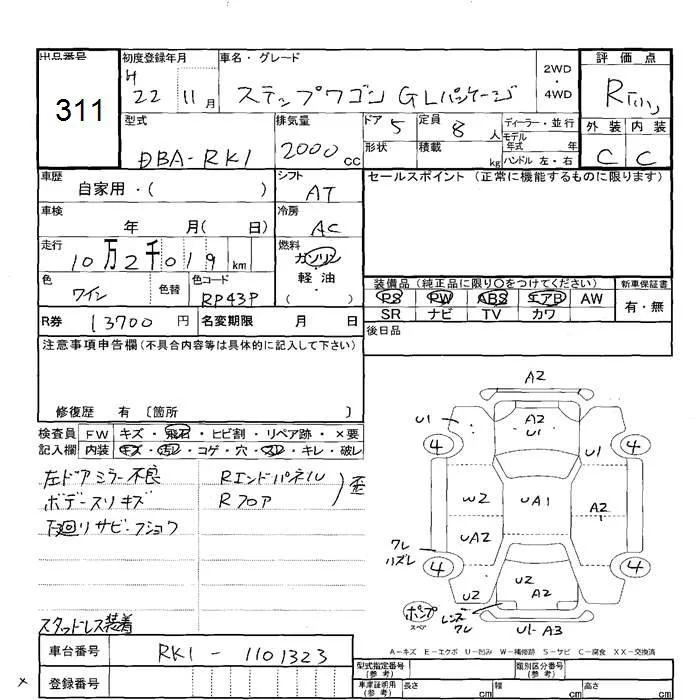 出品番号
311
初度登録年月
H 22 11月
車名・グレード
ステップワゴン GLパッケージ
2WD
・
4WD
評価点
R
外装 内装
C C
型式
DBA-RK1
排気量
2000 cc
ドア 5
定員 8 人
形状
積載 kg
ディーラー・並行
モデル年式 年
ハンドル 左・右
車歴
自家用・( )
シフト
AT
車検
年 月( 日)
冷房
AC
走行
10万2千019 km
燃料
ガソリン
軽油・
( )
色
ワイン
色替
色コード
RP43P
R券 13700 円
名変期限 月 日
セールスポイント (正常に機能するものに限ります)
装備品 (純正品に限り○をつけてください)
PS PW ABS エアB AW
SR ナビ TV カワ
新車保証書
有・無
後日品
注意事項申告欄 (不具合内容等は具体的に記入して下さい)
修復歴 有 〔箇所 〕
検査員 FW キズ・飛石・ヒビ割・リペア跡・×要
記入欄 内装 キズ・汚レ・コゲ・穴・スレ・キレ・破レ
左ドアミラー不良 Rエンドパネル
ボデースリキズ Rフロア
歪
下廻リサビ・フショク
スタッドレス装着
車台番号 RK1-1101323
登録番号
×
A2
U1 A2 U1 U1
4 4
W2 UA1 A2 1
UA2
ワレ
ハズレ
4 4
U2 U2 A2 U2
ポンプ
スペア
レンズワレ
U1-A3
A-キズ E-エクボ U-凹み W-補修跡 S-サビ C-腐食 XX-交換済
型式指定番号
(参考)
類別区分番号
(参考)
車庫証明用
(参考)
長さ cm 幅 cm 高さ cm